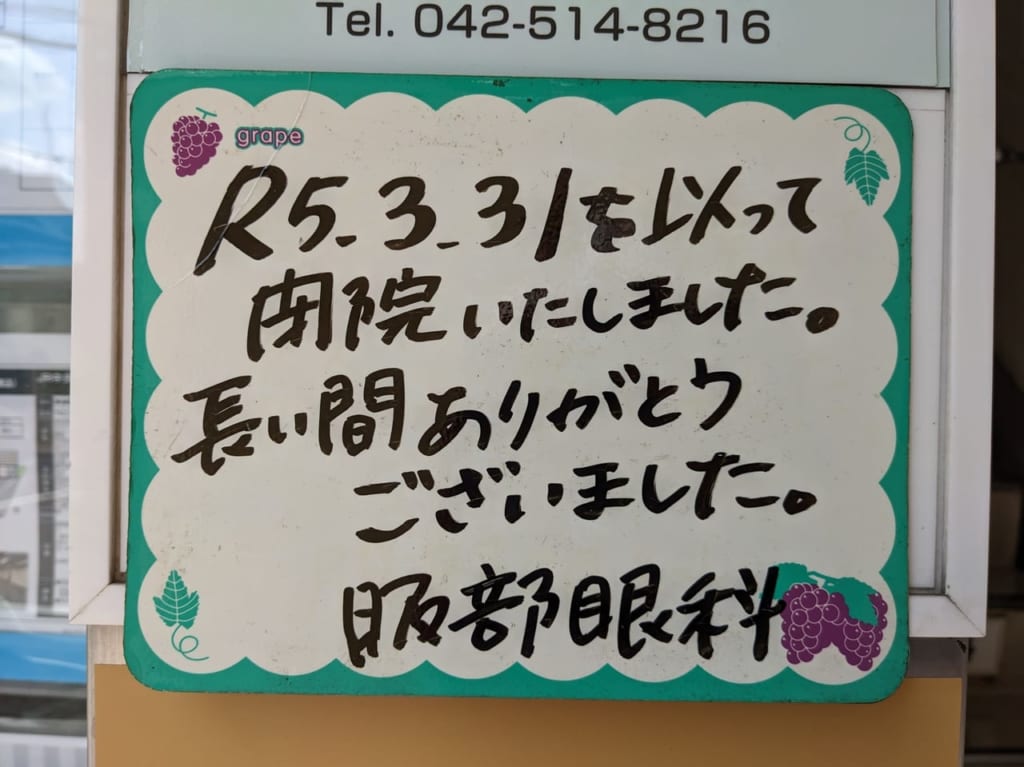 Tel. 042-514-8216
grape
R5.3.31を以って
閉院いたしました。
長い間ありがとう
ございました。
服部眼科